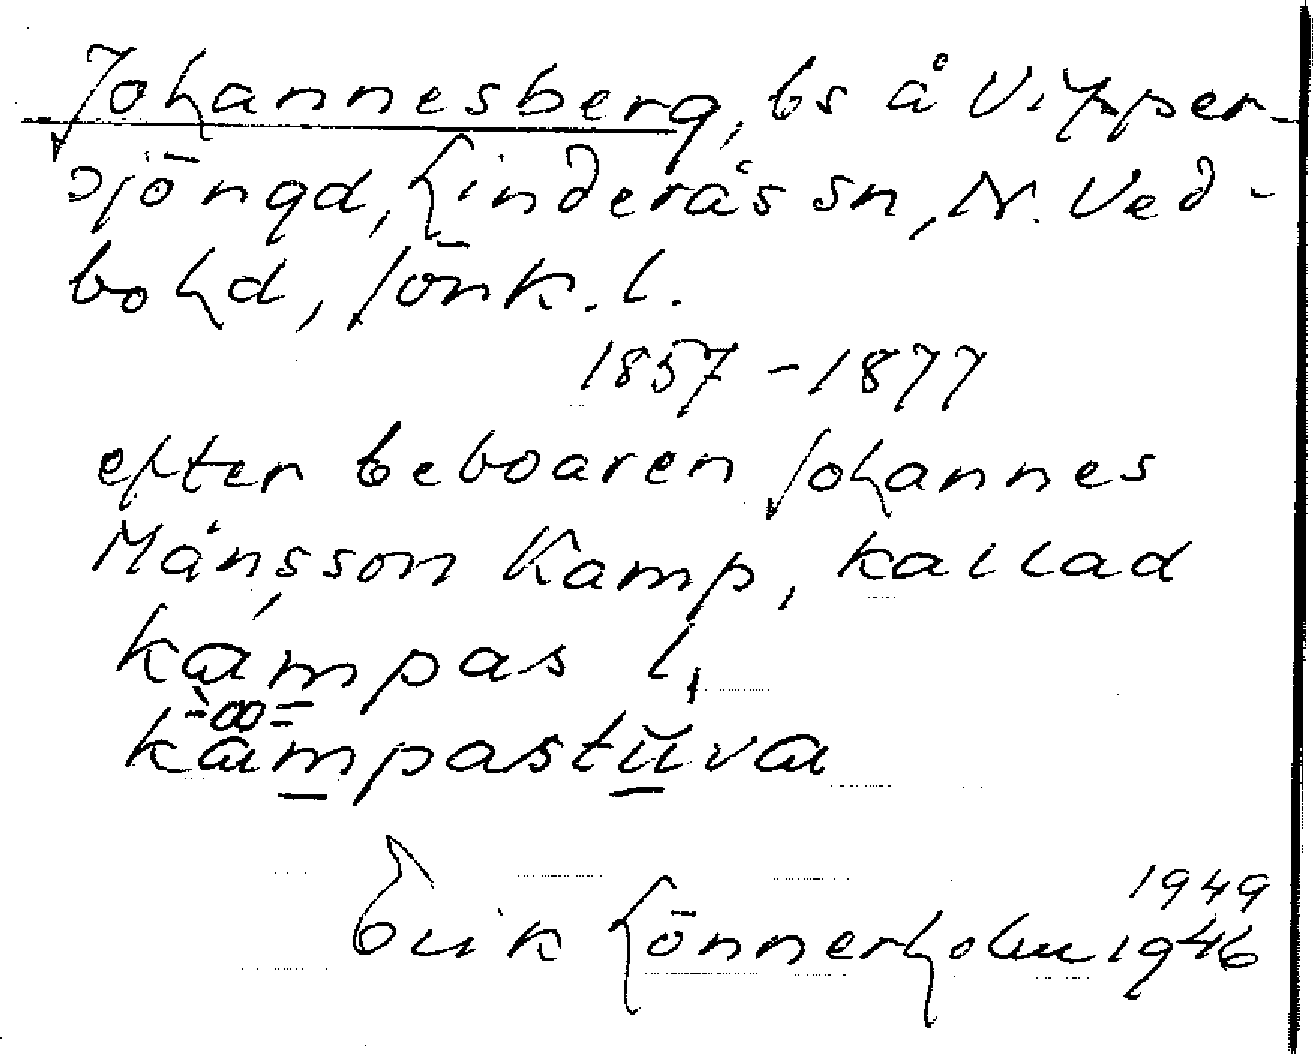 Johannesberg, bs å Vipper-
sjöngd, Linderås sn, N. Ved-
bohd, Jönk. l.
1857 - 1877
efter beboaren Johannes
Månsson Kamp, kallad
kampas l.
kampastuva
1949
Erik Lönnerholm 1946